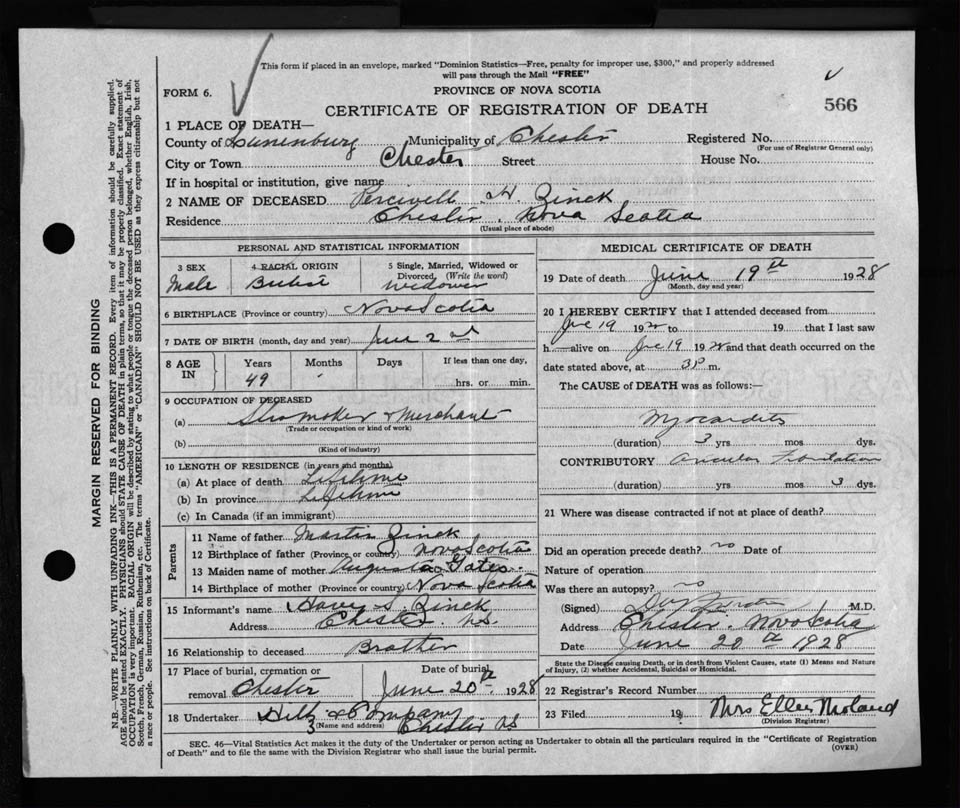 This form if placed in an envelope, marked "Dominion Statistics—Free, penalty for improper use, $300," and properly addressed
will pass through the Mail "FREE"
FORM 6.
PROVINCE OF NOVA SCOTIA
566
CERTIFICATE OF REGISTRATION OF DEATH
1 PLACE OF DEATH—
County of Lunenburg Municipality of Chester Registered No.
(For use of Registrar General only)
City or Town Chester Street House No.
If in hospital or institution, give name
2 NAME OF DECEASED Percivell H. Zinck
Residence Chester. Nova Scotia
(Usual place of abode)
PERSONAL AND STATISTICAL INFORMATION
3 SEX 4 RACIAL ORIGIN 5 Single, Married, Widowed or
Divorced, (Write the word)
Male widower
6 BIRTHPLACE (Province or country) Nova Scotia
7 DATE OF BIRTH (month, day and year) June 2nd
8 AGE IN Years Months Days If less than one day,
49 hrs. or min.
9 OCCUPATION OF DECEASED
(a) & Merchant
(Trade or occupation or kind of work)
(b)
(Kind of industry)
10 LENGTH OF RESIDENCE (in years and months)
(a) At place of death Lifetime
(b) In province Lifetime
(c) In Canada (if an immigrant)
Parents
11 Name of father Martin Zinck
12 Birthplace of father (Province or country) Nova Scotia
13 Maiden name of mother Augusta Gates.
14 Birthplace of mother (Province or country) Nova Scotia
15 Informant's name S. Zinck
Address Chester N.S.
16 Relationship to deceased Brother
17 Place of burial, cremation or Date of burial
removal Chester June 20th 1928
18 Undertaker & Company
(Name and address) Chester NS
MEDICAL CERTIFICATE OF DEATH
19 Date of death June 19th 1928
(Month, day and year)
20 I HEREBY CERTIFY that I attended deceased from
19 19 to 19 that I last saw
h alive on 19 19 and that death occurred on the
date stated above, at 3P m.
The CAUSE of DEATH was as follows:—
Myocarditis
(duration) 3 yrs mos dys.
CONTRIBUTORY Auricular Fibrillation
(duration) yrs mos 3 dys.
21 Where was disease contracted if not at place of death?
Did an operation precede death? no Date of
Nature of operation
Was there an autopsy? no
(Signed) M.D.
Address Chester. Nova Scotia
Date June 20th 1928
State the Disease causing Death, or in death from Violent Causes, state (1) Means and Nature
of Injury, (2) whether Accidental, Suicidal or Homicidal.
22 Registrar's Record Number
23 Filed 19 Mrs Ellen
(Division Registrar)
SEC. 46—Vital Statistics Act makes it the duty of the Undertaker or person acting as Undertaker to obtain all the particulars required in the "Certificate of Registration
of Death" and to file the same with the Division Registrar who shall issue the burial permit.
(OVER)
MARGIN RESERVED FOR BINDING
N.B.—WRITE PLAINLY WITH UNFADING INK—THIS IS A PERMANENT RECORD. Every item of information should be carefully supplied.
AGE should be stated EXACTLY. PHYSICIANS should STATE CAUSE OF DEATH in plain terms, so that it may be properly classified. Exact statement of
OCCUPATION is very important. RACIAL ORIGIN will be described by stating to what people or tongue the deceased person belonged, whether English, Irish,
Scotch, French, German, Russian, Ruthenian, etc. The terms "AMERICAN" or "CANADIAN" SHOULD NOT BE USED as they express citizenship but not
a race or people. See instructions on back of Certificate.